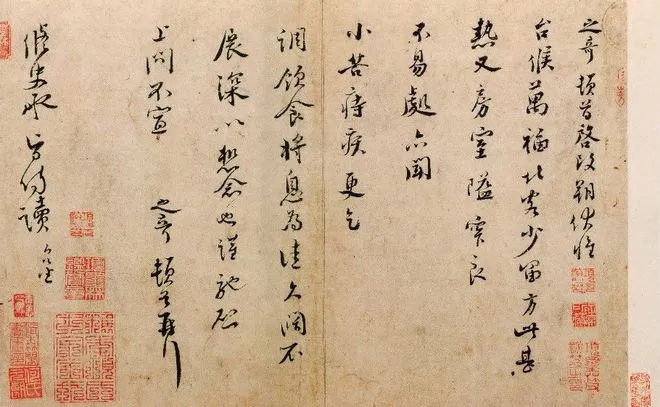 之奇頓首啓改朔伏惟
台候萬福北客少留方此甚
熱又房室隘窄良
不易處亦聞
小苦痔疾更乞
調飲食將息為佳久闊不
展深以想念也謹馳啓
上問不宣 之奇頓首再行
修史承旨侍讀 台坐